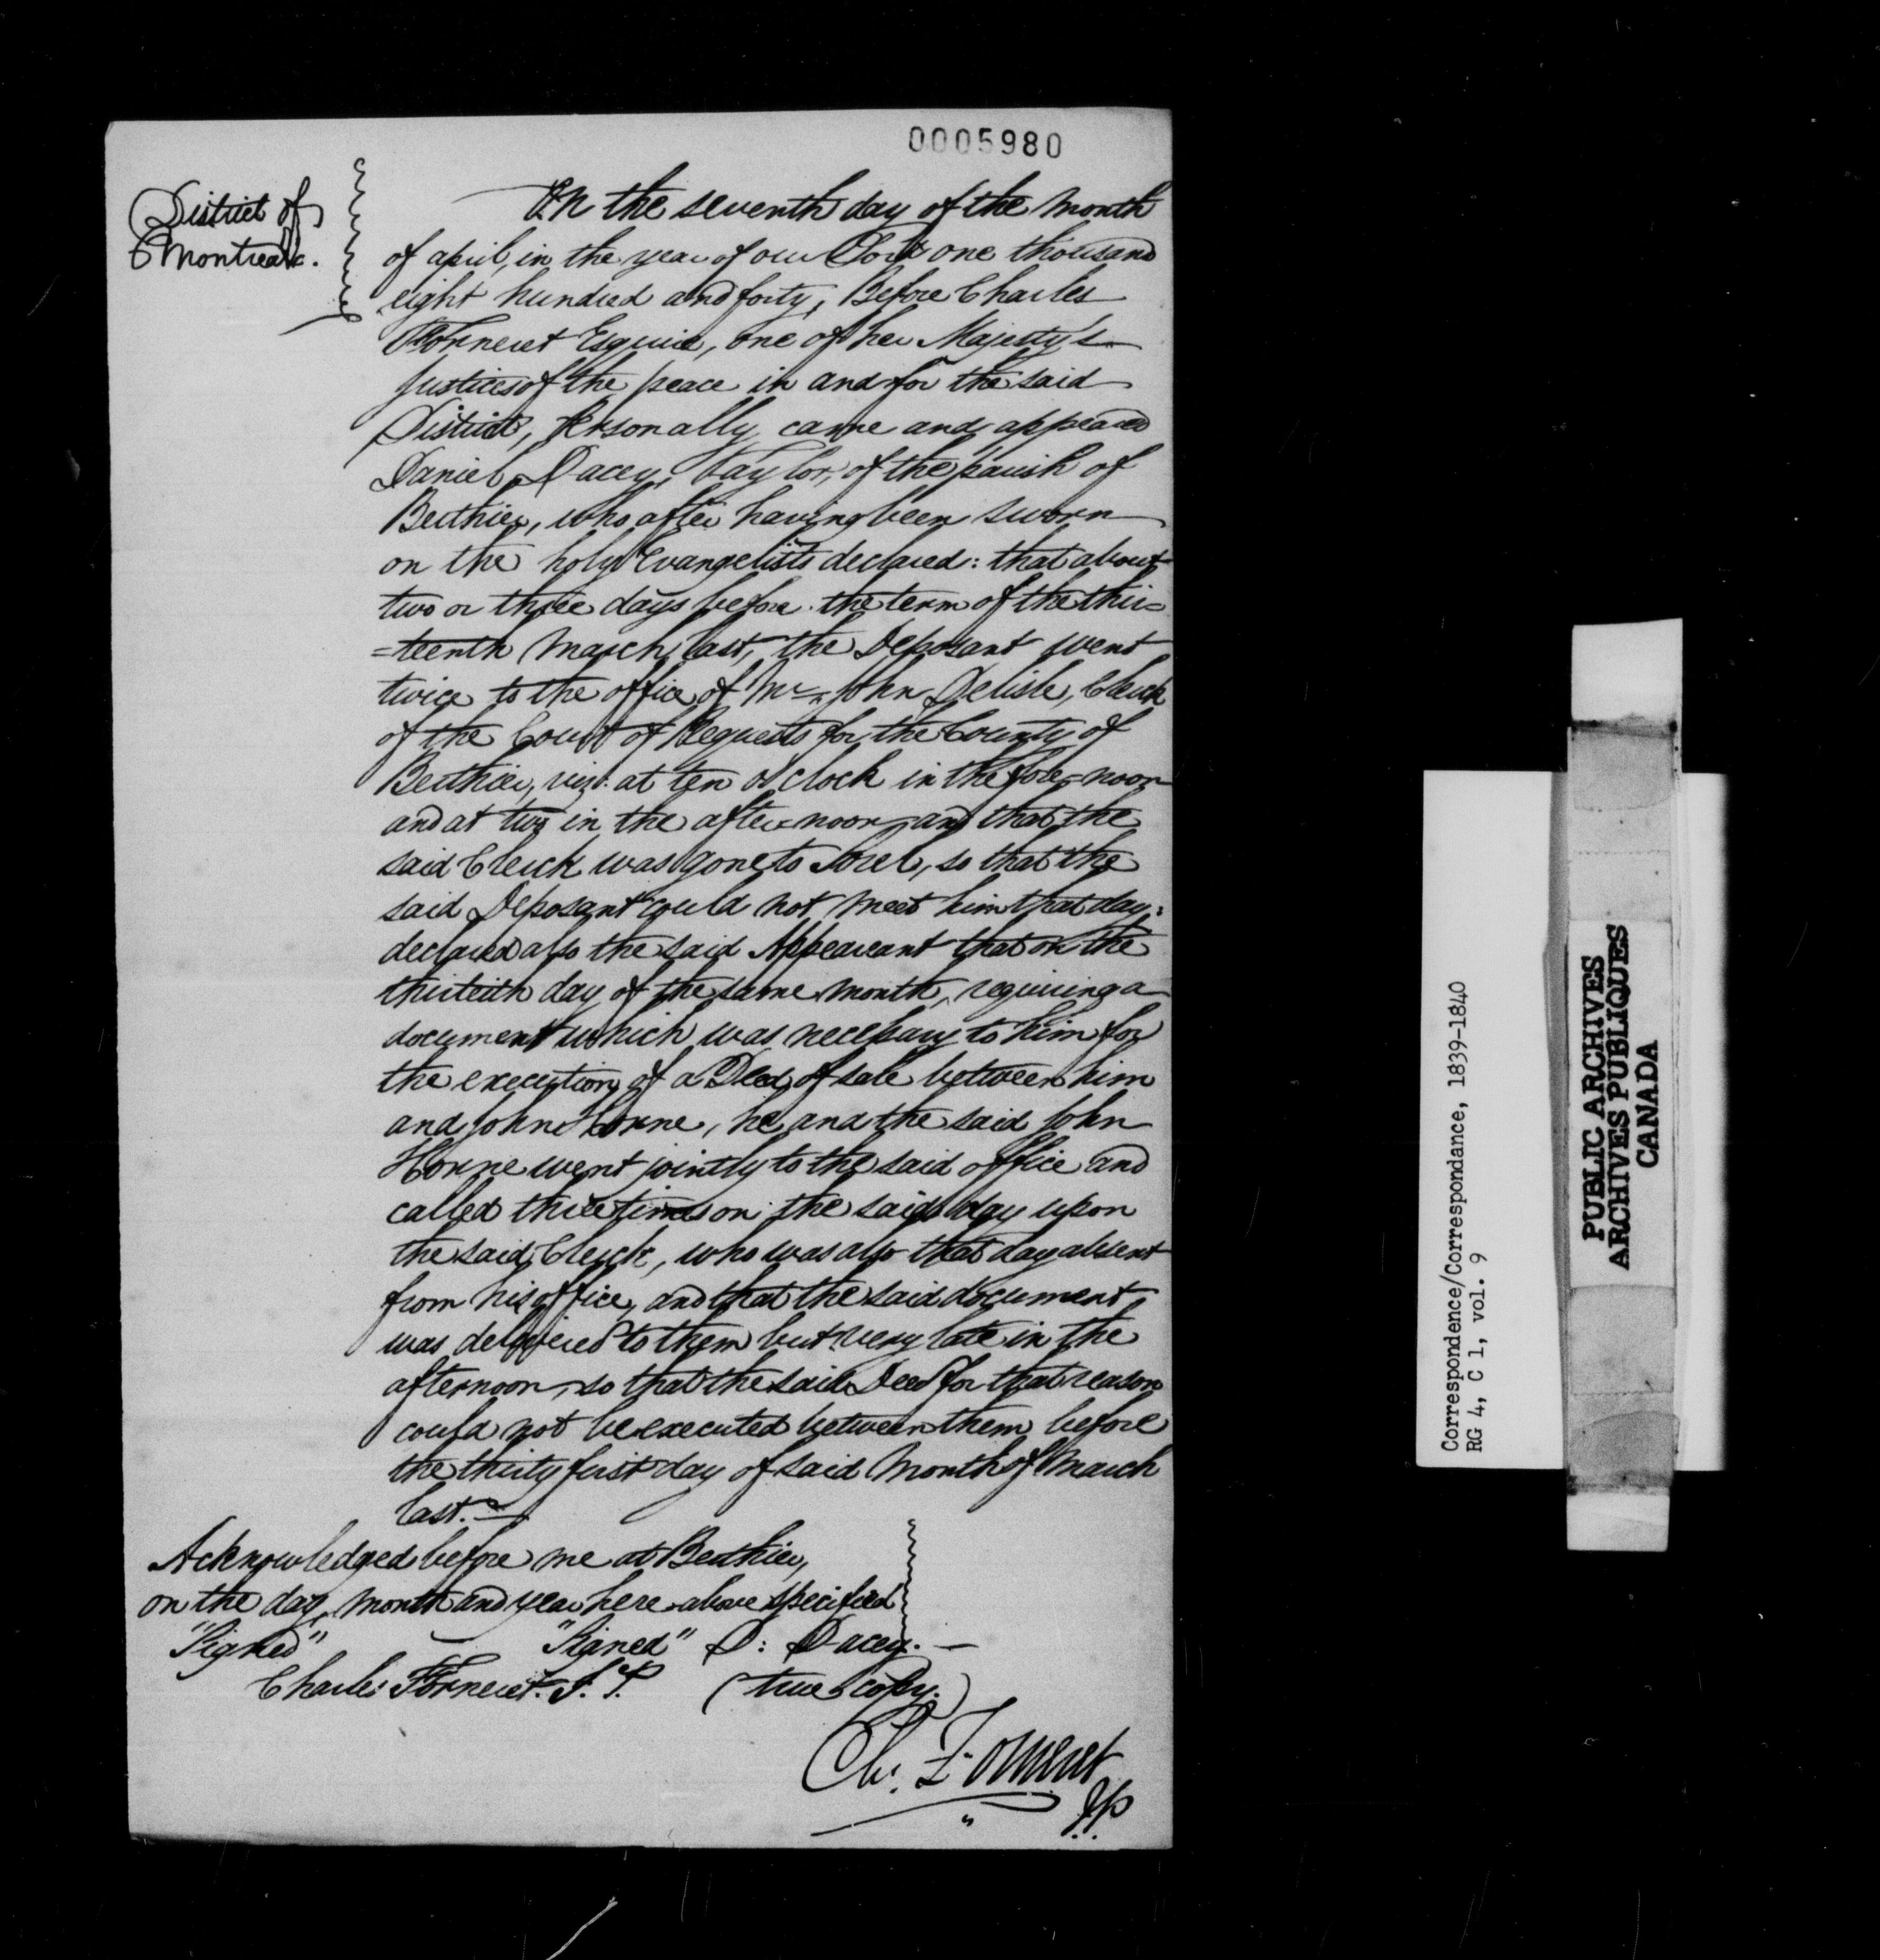 0005980
District of
Montreal.
On the seventh day of the month
of april, in the year of our Lord one thousand
eight hundred and forty, Before Charles
Forneret Esquire, one of her Majesty's
Justices of the peace in and for the said
District, personally came and appeared
Daniel Dacey, taylor, of the parish of
Berthier, who after having been sworn
on the holy Evangelists declared: that about
two or three days before the term of the thir=
=teenth March last, the Deposant went
twice to the office of Mr. John Delisle, Clerk
of the Court of Requests for the County of
Berthier, vizt. at ten o'clock in the fore-noon
and at two in the after-noon, and that the
said Clerck was gone to Sorel, so that the
said Deposant could not meet him that day:
declared also the said Appearant that on the
thirteith day of the same month, requiring a
document which was necessary to him for
the execution of a Deed of sale between him
and John Horne, he and the said John
Horne went jointly to the said office and
called three times on the said day upon
the said Clerck, who was also that day absent
from his office, and that the said document
was delivered to them but very late in the
afternoon, so that the said Deed for that reason
could not be executed between them before
the thirty first day of said Month of March
last.
Acknowledged before me at Berthier,
on the day, month and year here above specified
"Signed" "Signed" D: Dacey.
Charles Forneret. J. P. (true copy.)
Ch. Forneret
J.P.
Correspondence/Correspondance, 1839-1840
RG 4, C 1, vol. 9
PUBLIC ARCHIVES
ARCHIVES PUBLIQUES
CANADA